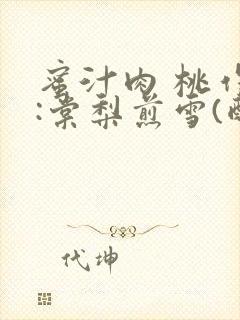 蜜汁肉桃作
:棠梨煎雪(醉
代坤